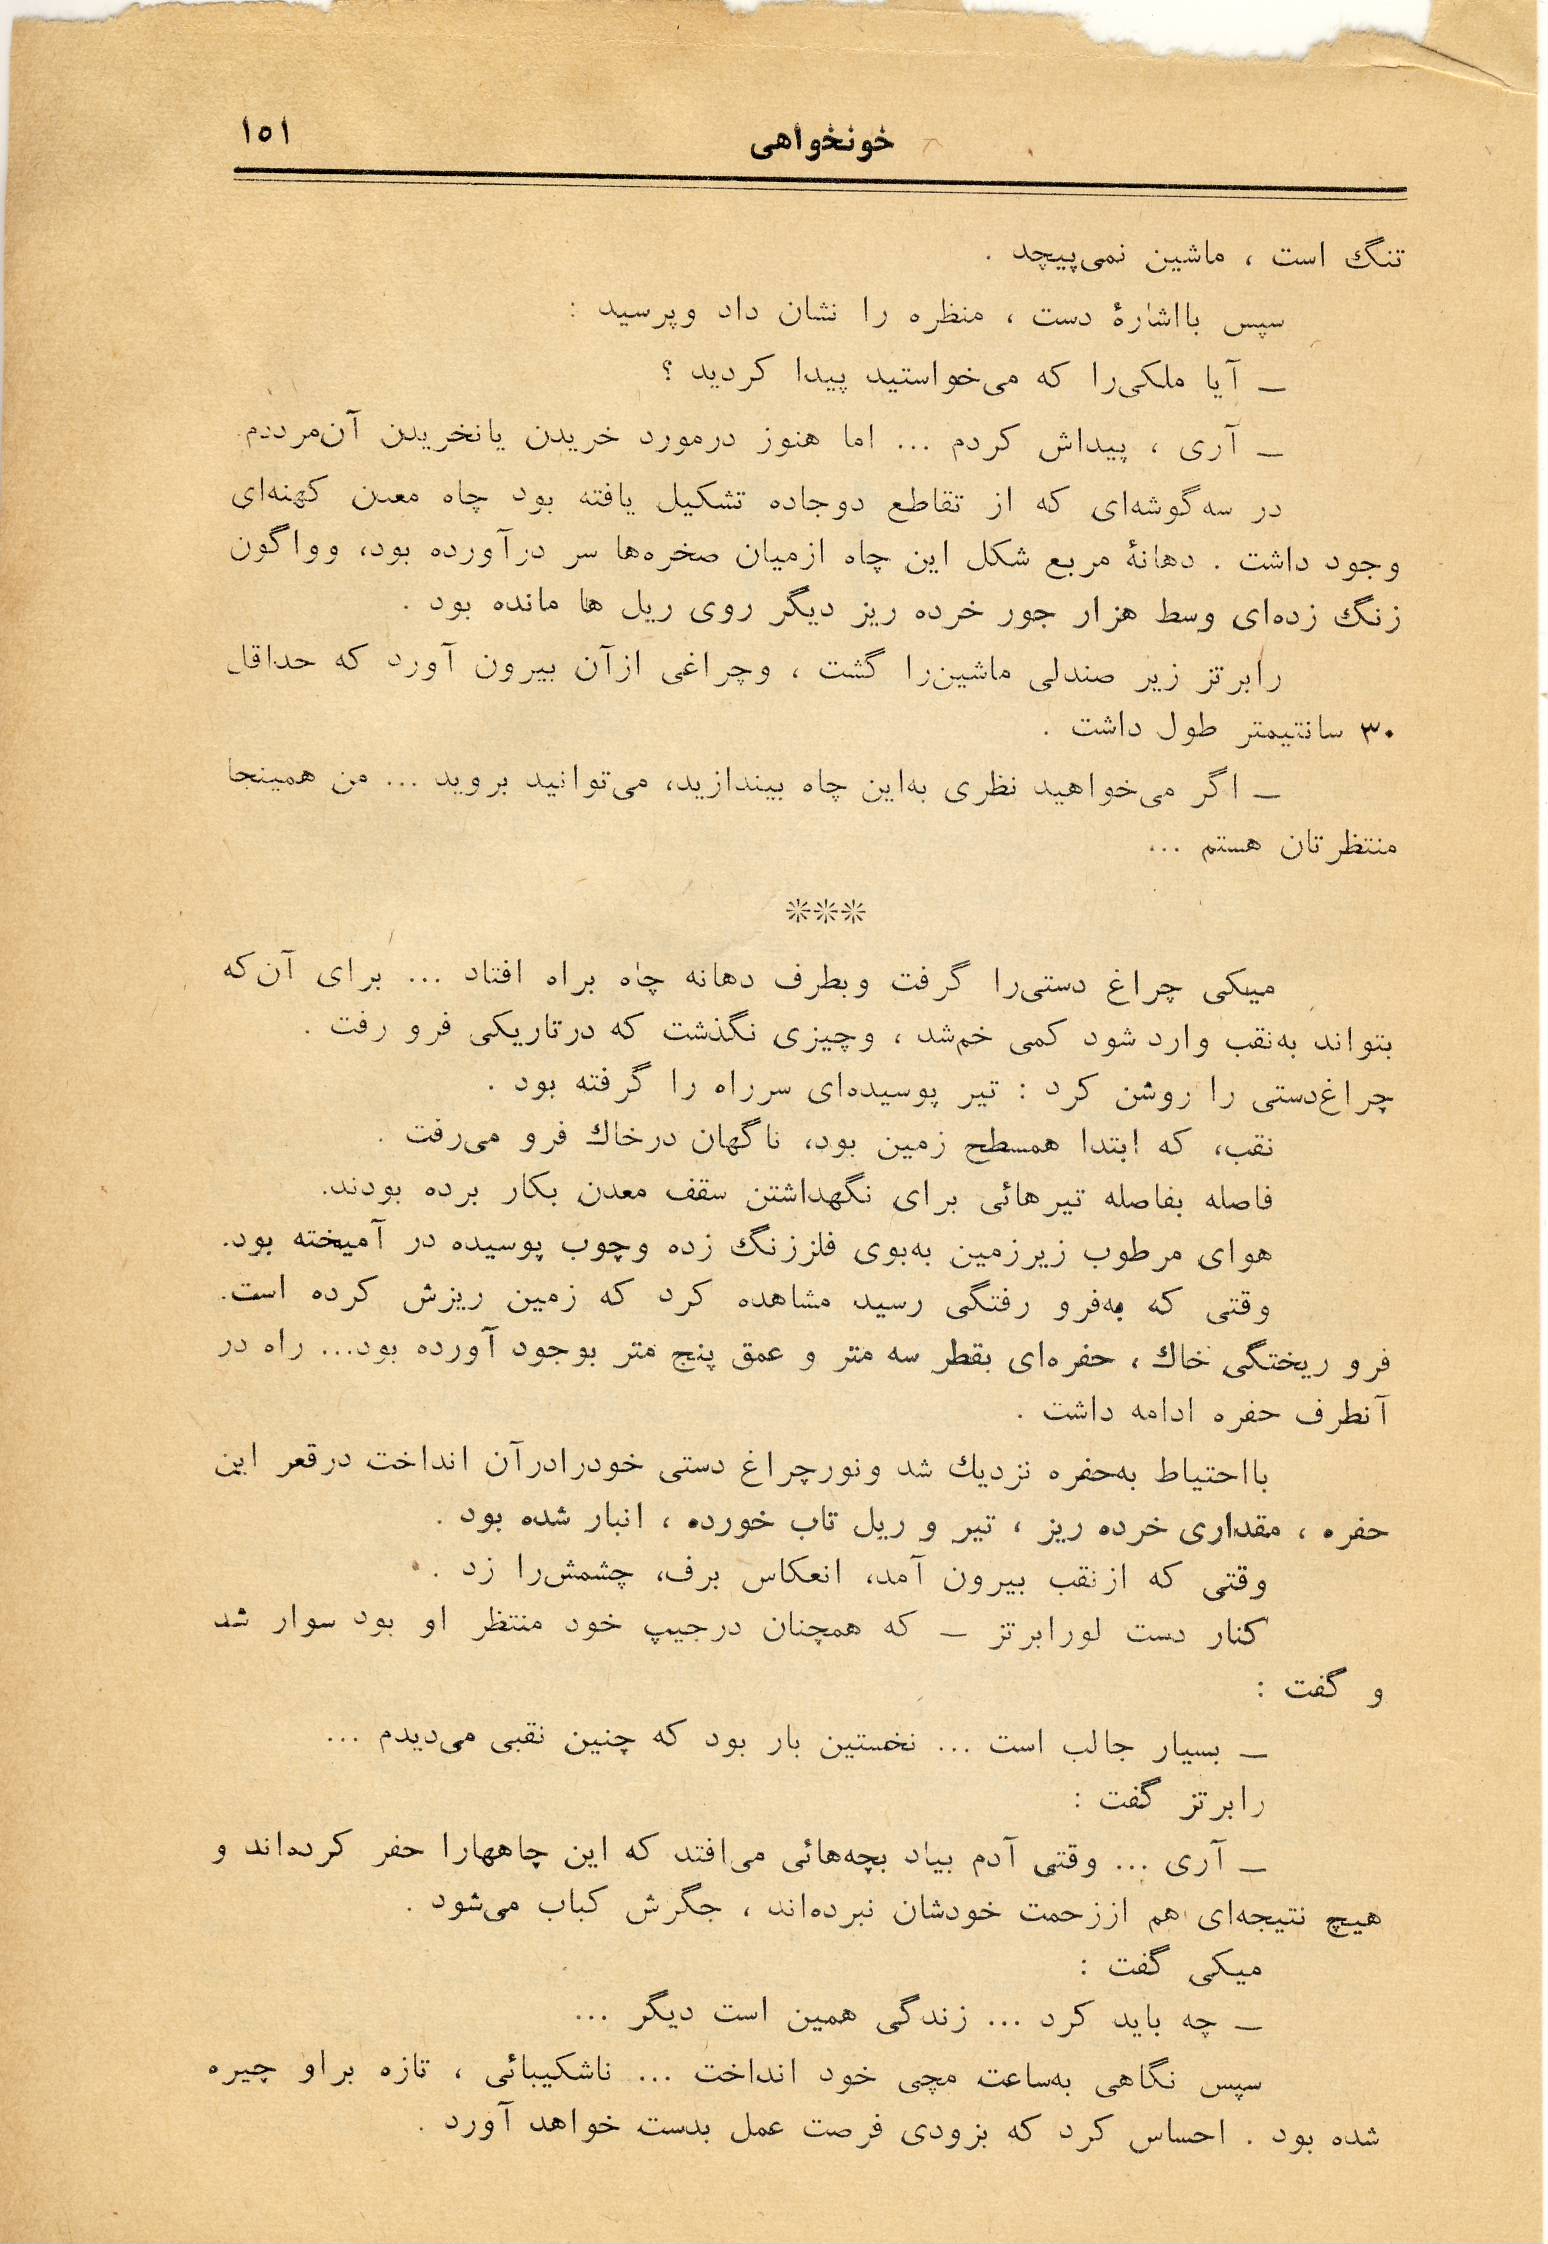 خونخواهی ۱۵۱
تنگ است ، ماشین نمی‌پیچد .
سپس بااشارهٔ دست ، منظره را نشان داد وپرسید :
ـ آیا ملکی‌را که می‌خواستید پیدا کردید ؟
ـ آری ، پیداش کردم ... اما هنوز درمورد خریدن یانخریدن آن‌مرددم.
در سه‌گوشه‌ای که از تقاطع دوجاده تشکیل یافته بود چاه معدن کهنه‌ای
وجود داشت . دهانهٔ مربع شکل این چاه ازمیان صخره‌ها سر درآورده بود، وواگون
زنگ زده‌ای وسط هزار جور خرده ریز دیگر روی ریل ها مانده بود .
رابرتز زیر صندلی ماشین‌را گشت ، وچراغی ازآن بیرون آورد که حداقل
۳۰ سانتیمتر طول داشت .
ـ اگر می‌خواهید نظری به‌این چاه بیندازید، می‌توانید بروید ... من همینجا
منتظرتان هستم ...
***
میکی چراغ دستی‌را گرفت وبطرف دهانه چاه براه افتاد ... برای آن‌که
بتواند به‌نقب وارد شود کمی خم‌شد ، وچیزی نگذشت که درتاریکی فرو رفت .
چراغ‌دستی را روشن کرد : تیر پوسیده‌ای سرراه را گرفته بود .
نقب، که ابتدا همسطح زمین بود، ناگهان درخاك فرو می‌رفت .
فاصله بفاصله تیرهائی برای نگهداشتن سقف معدن بکار برده بودند.
هوای مرطوب زیرزمین به‌بوی فلززنگ زده وچوب پوسیده در آمیخته بود.
وقتی که به‌فرو رفتگی رسید مشاهده کرد که زمین ریزش کرده است.
فرو ریختگی خاك ، حفره‌ای بقطر سه متر و عمق پنج متر بوجود آورده بود... راه در
آنطرف حفره ادامه داشت .
بااحتیاط به‌حفره نزدیك شد ونورچراغ دستی خودرادرآن انداخت درقعر این
حفره ، مقداری خرده ریز ، تیر و ریل تاب خورده ، انبار شده بود .
وقتی که ازنقب بیرون آمد، انعکاس برف، چشمش‌را زد .
کنار دست لورابرتز ـ که همچنان درجیپ خود منتظر او بود سوار شد
و گفت :
ـ بسیار جالب است ... نخستین بار بود که چنین نقبی می‌دیدم ...
رابرتز گفت :
ـ آری ... وقتی آدم بیاد بچه‌هائی می‌افتد که این چاههارا حفر کرده‌اند و
هیچ نتیجه‌ای هم اززحمت خودشان نبرده‌اند ، جگرش کباب می‌شود .
میکی گفت :
ـ چه باید کرد ... زندگی همین است دیگر ...
سپس نگاهی به‌ساعت مچی خود انداخت ... ناشکیبائی ، تازه براو چیره
شده بود . احساس کرد که بزودی فرصت عمل بدست خواهد آورد .